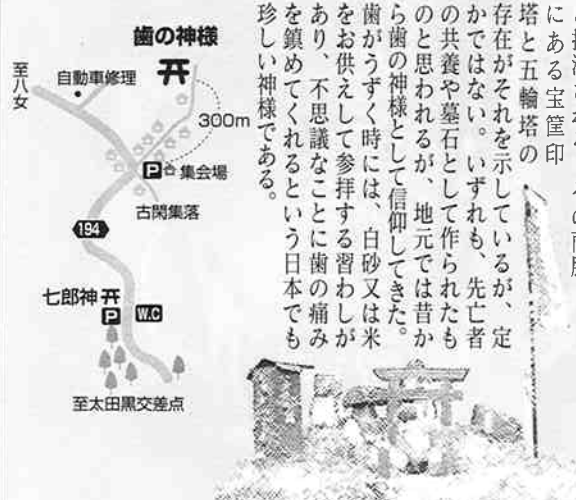 にある宝筐印
塔と五輪塔の
存在がそれを示しているが、定
かではない。いずれも、先亡者
の共養や墓石として作られたも
のと思われるが、地元では昔か
ら歯の神様として信仰してきた。
歯がうずく時には、白砂又は米
をお供えして参拝する習わしが
あり、不思議なことに歯の痛み
を鎮めてくれるという日本でも
珍しい神様である。
歯の神様
至八女
自動車修理
300m
P
集会場
古閑集落
194
七郎神
P
W.C
至太田黒交差点